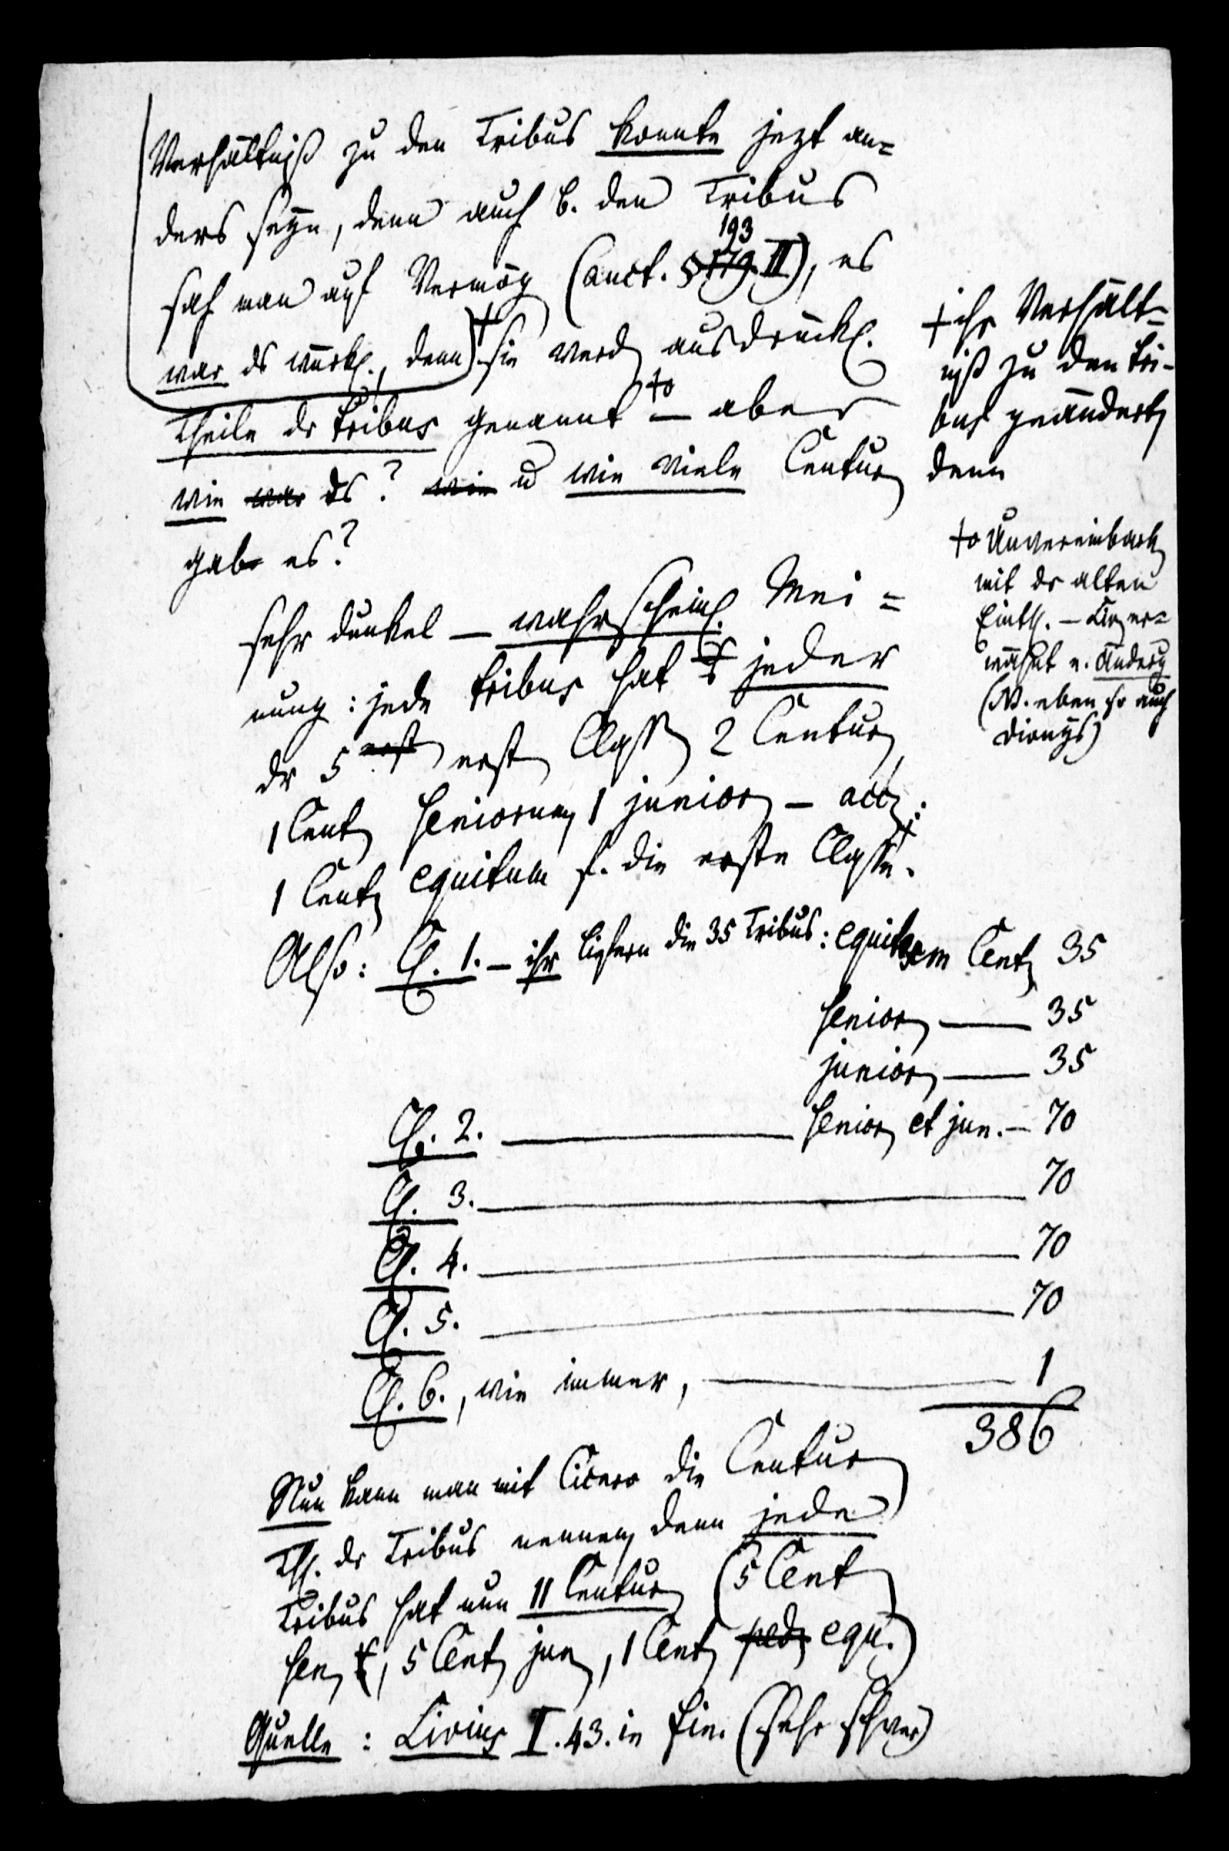 Verhältniß zu den Tribus konnte jezt an=
ders seyn, denn auch b. den Tribus
sah man auf Vermög (auct. § 179. 193 II), es
war ds würkl., denn) + sie werd ausdrückl.
Theile dr Tribus genannt +o — aber
wie war ds? wie u wie viele Centur
gabe es?
sehr dunkel — wahrscheinl. Mei=
nung: jede Tribus hat jeder
dr 5 erst erst Class 2 Centur
1 Cent seniorum 1 junior — acc.:
1 Cent equitum f. die erste Classe.
Also: Cl. 1. — ihr liefern die 35 Tribus: equitum Cent 35
senior — 35
junior — 35
Cl. 2. — senior et jun. — 70
Cl. 3. — 70
Cl. 4. — 70
Cl. 5. — 70
Cl. 6., wie immer, — 1
386
Nun kann man mit Cicero die Centur
Th. dr Tribus nennen denn jede
Tribus hat nun 11 Centur (5 Cent
sen, 5 Cent jun, 1 Cent ped equ.)
Quelle: Livius I. 43. in fin. (sehr schwer)
+ ihr Verhält=
niß zu den Tri-
bus geändert
denn
+o Unvereinbar
mit dr alten
Einth. — Liv er=
wähnt e. Änderung
(NB. eben so auch
Dionys)